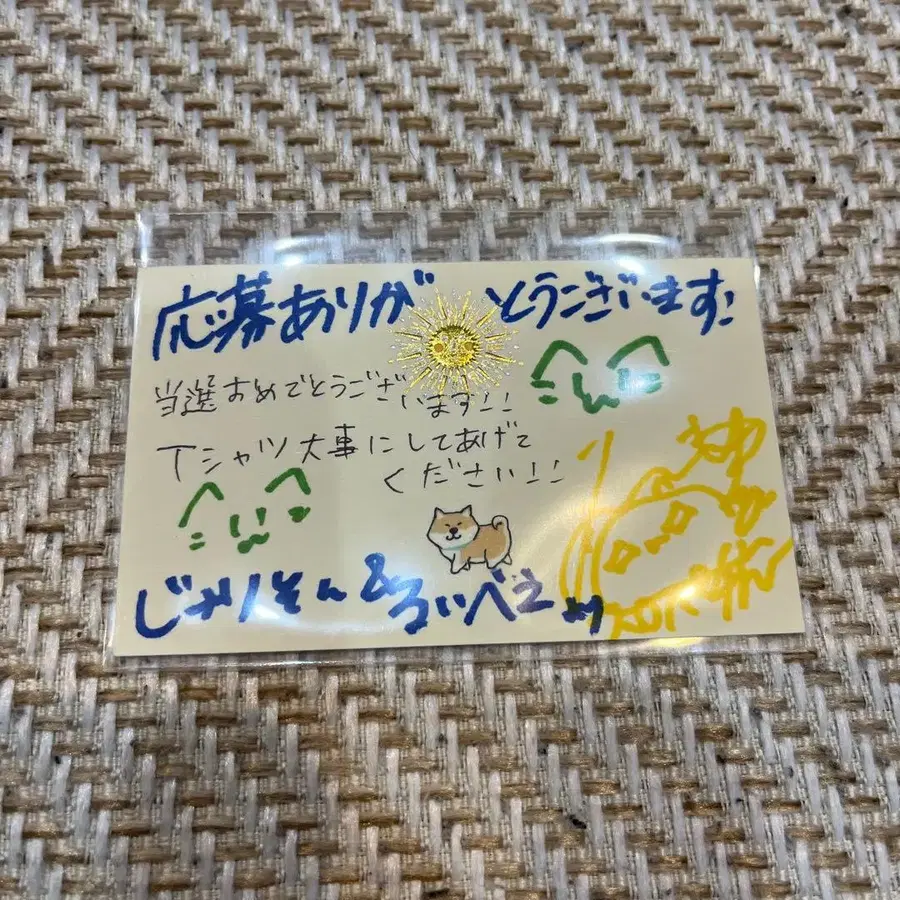 応募ありがとうございます!
当選おめでとうございます!!
Tシャツ大事にしてあげて
ください!!
じゃりそん&るいべえより